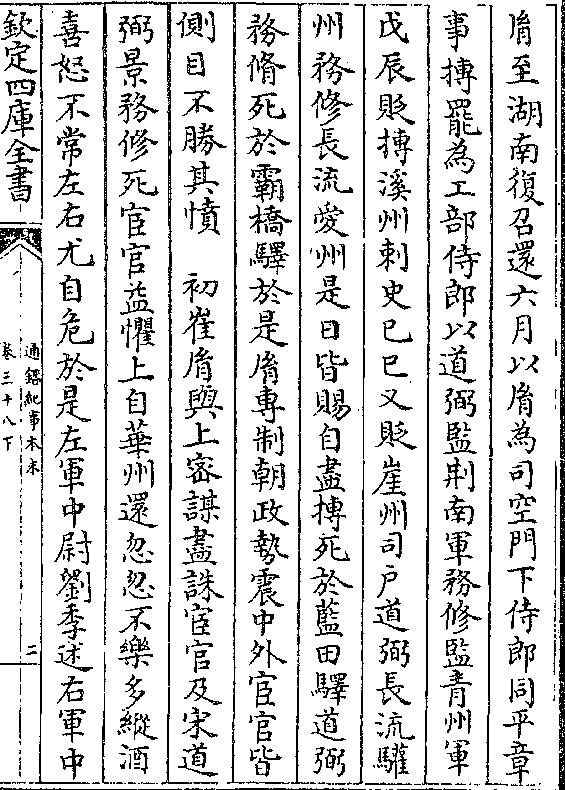 胤至湖南復召還六月以胤為司空門下侍郎同平章
事摶罷為工部侍郎以道弼監荆南軍務修監青州軍
戊辰貶摶溪州刺史已巳又貶崖州司户道弼長流驩
州務修長流愛州是日皆賜自盡摶死於藍田驛道弼
務脩死於霸橋驛於是胤専制朝政勢震中外宦官皆
側目不勝其憤　初崔胤與上密謀盡誅宦官及宋道
弼景務修死宦官益懼上自華州還忽忽不樂多縱酒
喜怒不常左右尤自危於是左軍中尉劉季述右軍中
欽定四庫全書
通鑑紀事本末
卷三十八下
二